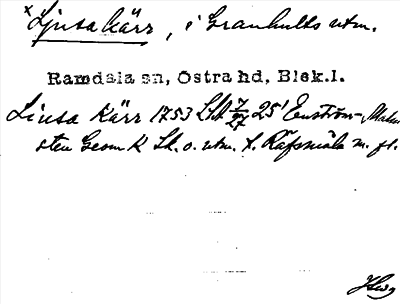 × Ljusa Kärr, i Granhults utm.
Ramdala sn, Östra hd, Blek.l.
Liusa Kärr 1753 LSA 7/27 25¹ Enström-, Malm
sten Geom K Sk. o. utm. t. Räfsmåla m. fl.